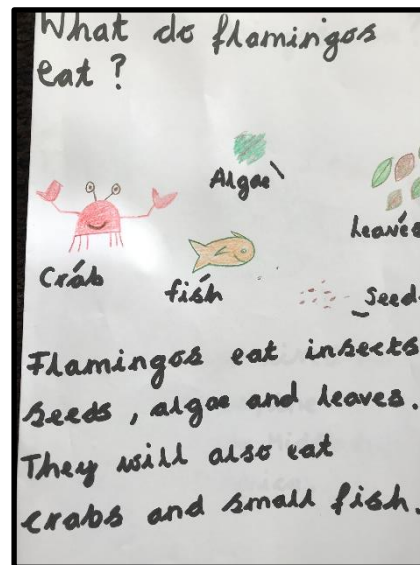 What do flamingos
eat?
Algae
leaves
Crab
fish
Seed
Flamingos eat insects
seeds, algae and leaves.
They will also eat
crabs and small fish.